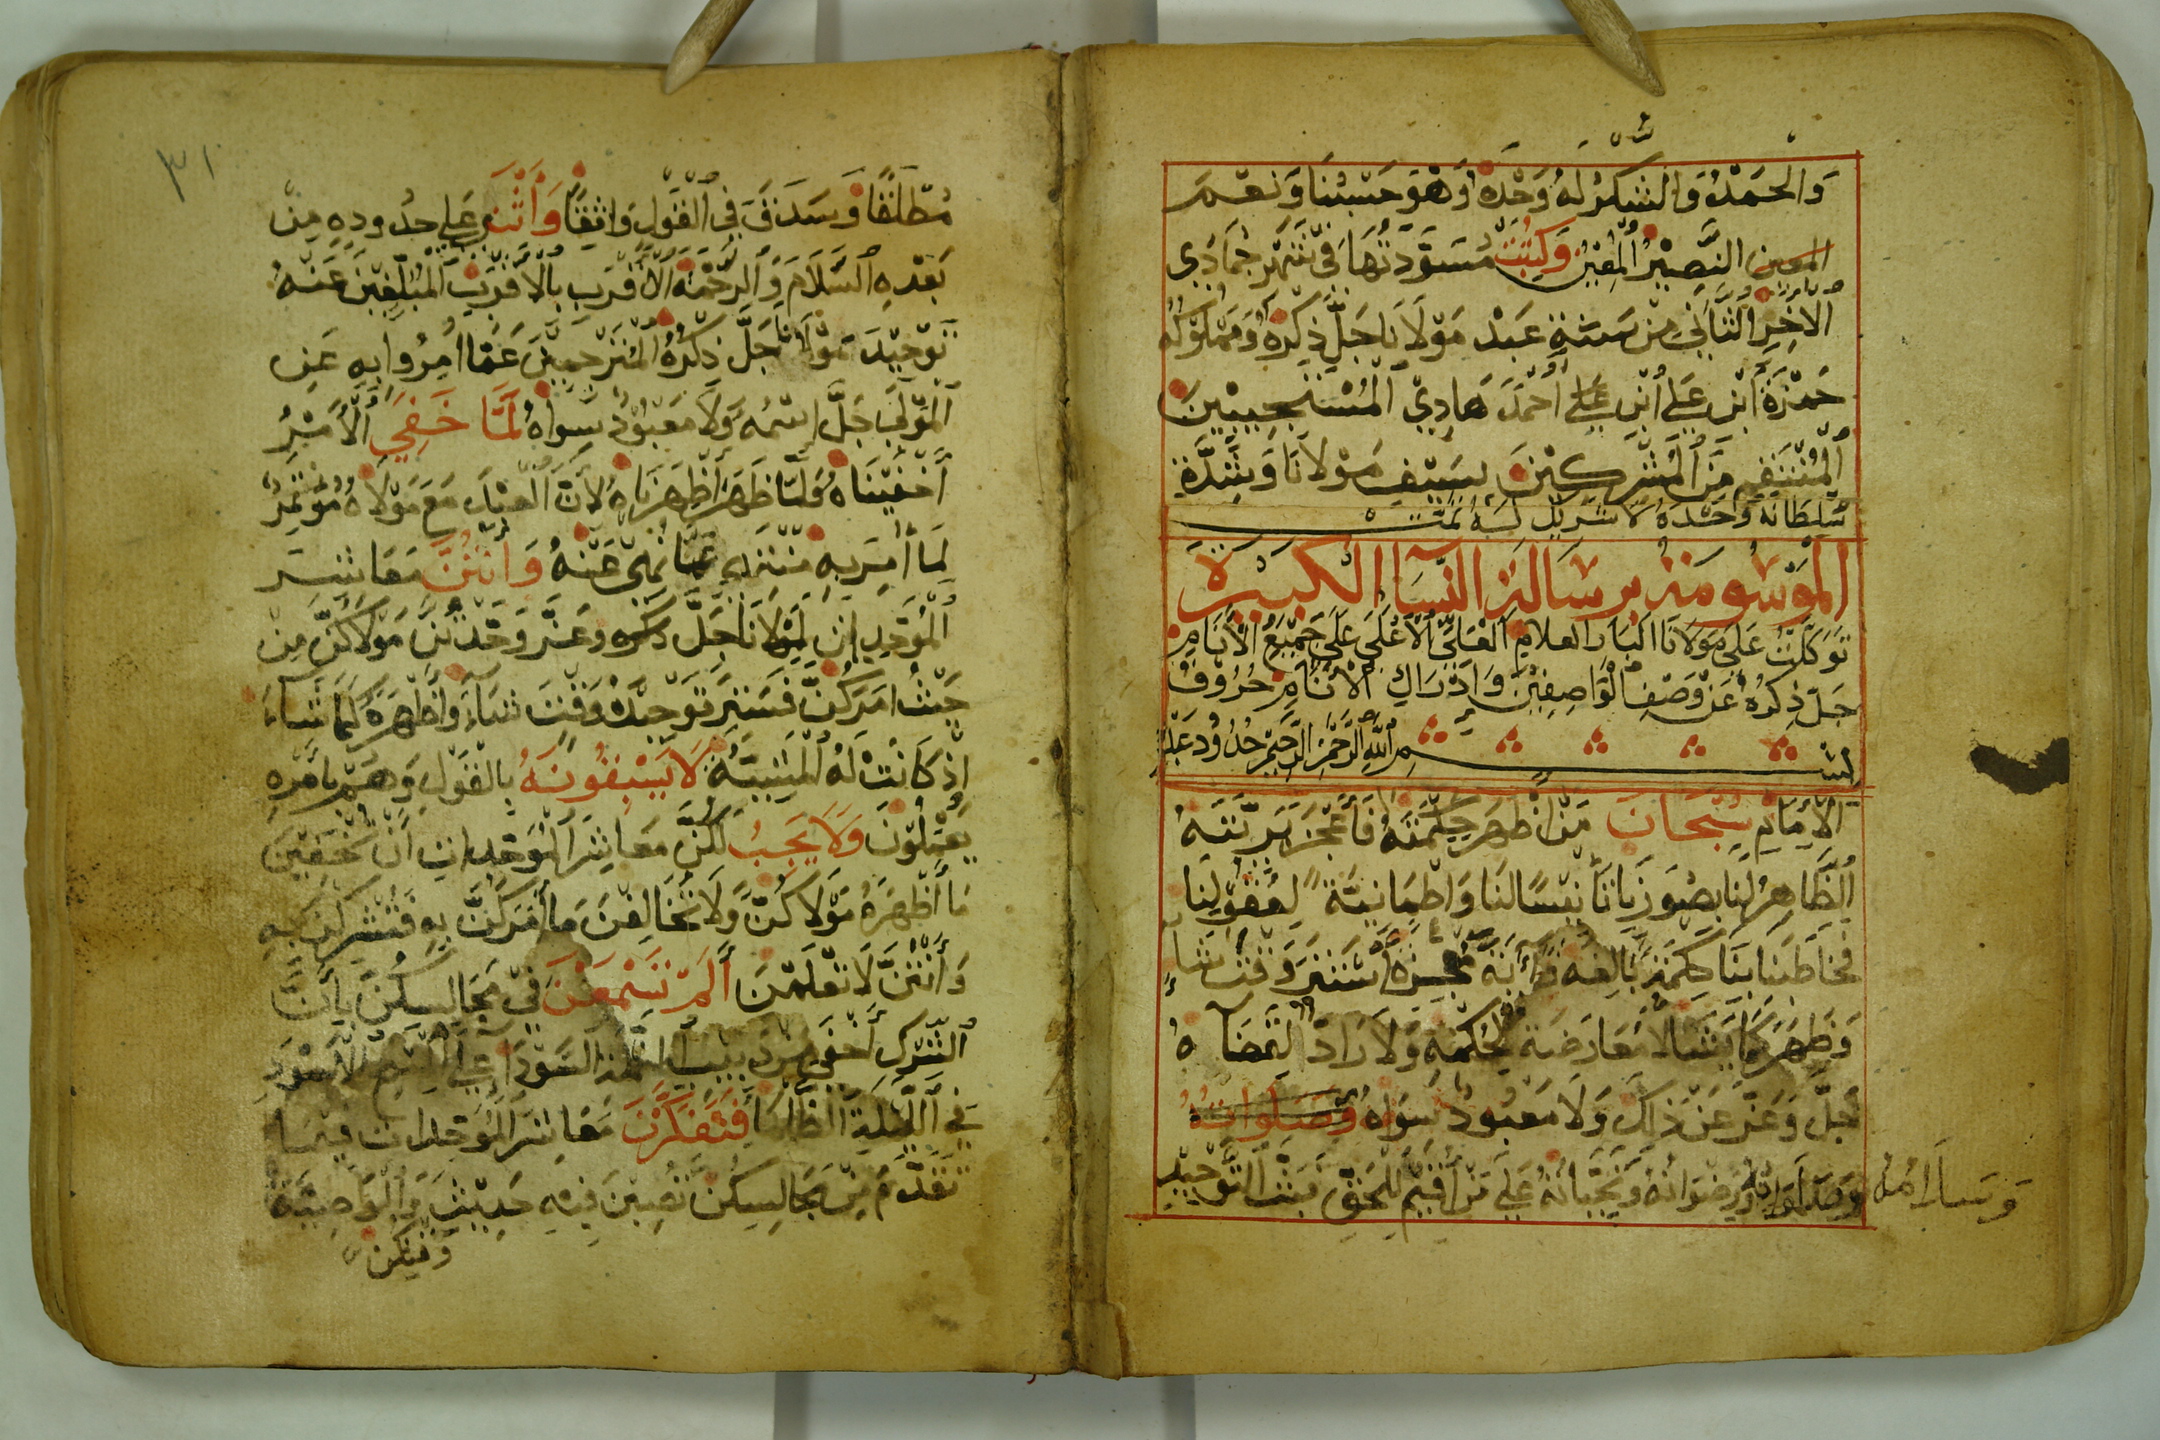 وَالحَمْدُ وَالشكرُ لهُ وَحْدَهُ وَهْوَ حَسْبُنَا وَنعْمَ
المعين النَّصِيْرُ المُعِيْنُ وَكتِبَتْ مسَوَّدَتُهَا فيْ شَهْرِ جُمَادَي
الاخِرِ الثَّانِي مِنْ سَنَةِ عَبْد مَوْلَانا جَلَّ ذِكرُهُ وَمَمْلوْكُهُ
حَمْزَةَ ابْنِ عَلِي ابْنِ عَلِي أحْمَدَ هَادِيْ المُسْتَجيْبيْنَ
المُنْتَقِمِ مِنَ المُشْركيْنَ بسَيْفِ مَوْلَانَا وَشِدَّةِ
سُلطَانهُ وَاحْدَهُ لَا شَرِيْك لهُ تمت
المَوْسُومَةُ برسَالَةِ النِّسَآ الكَبيْرَة
تَوَكّلتُ عَلَى مَوْلَانَا البَار العلامِ العَلِيِّ الأعْلَى عَلَى جَمِيْعِ الأنَامِ مِنْ
جَلَّ ذِكرُهُ عَنْ وَصْفِ الوَاصِفِيْنَ وَادْرَاكِ الأنَامِ حُرُوْفُ
بِسْمِ اللهِ الرَّحْمَنِ الرَّحِيْمِ حُدُوْدِ عَبْدِهِ
الأِمَامِ سُبْحَانَ مَنْ أظْهَرَ حِكْمَتَهُ فَأعْجَزَ بَرِيَّتَهُ
الظَّاهِرُ لنَا بصُوَرِنَا تَأنِيْسًا لنَا وَاطْمَانيَةً لِعُقُوْلِنَا
فخَاطَبَنا بنَا حِكمَةً بَالِغَه وَايَةً مُعْجِزَه أسْتَتَرَ وَقْتَ شَاءَ
وَظَهَرَ كَمَا يَشَا لَا مُعَارَضَة لِحُكمَهِ وَلَا رَادَّ لِقَضَآهُ
جَلَّ وَعَزَّ عَنْ ذَلِكَ وَلَا مَعْبُودَ سِوَاهُ وَصَلوَاتهُ
وَسَلَامُهُ وَصَلوَاتهُ وَرضْوَانُهُ وَتحِيَّاتهُ عَلَى مَنْ أقِيْمَ لِلحَقِّ مَبَثَّ التَّوْحِيْدِ
٣١
مُطْلَقًا وَسَدَقَ فِي القَوْلِ وَاثِقًا وَأثْنِي عَلي حدُودِهِ مِنْ
بَعْدِهِ السَّلَامَ وَالرَّحْمَة الأقْرَبِ بالأقْرَبِ المُبلِّغِيْنَ عَنْهُ
تَوْحِيْدَ مَوْلَانَا جَلَّ ذِكْرُهُ المُتَرْجِمِيْنَ عَمَّا امِرُوا بِهِ عَنِ
المَوْلَى جَلَّ اسْمُهُ وَلَا مَعْبُوْدَ سِوَاهُ لَمَّا خَفِيَ الأَمْرُ
أخْفَيْنَاهُ وَلمَّا ظَهَرَ أظْهَرْنَاهُ لأنَّ العَبْدَ مَعَ مَوْلَاهُ مُؤْتَمِرٌ
لِمَا أُمِرَ بهِ مُنْتَهِي عَمَّا نُهِيَ عَنْهُ وَأنْتُنَّ مَعَاشِرَ
المُوَحِدَاتِ لِمَوْلَانَا جَلَّ ذكره وعَزَّ وَحّدْتُنَّ مَوْلَاكُنَّ مِنْ
حَيْثُ امَرَكُنَّ فَسَتَرَ تَوْحِيْدَهُ وَقْتَ شَاءَ وَأظْهَرَهُ كَمَا شَاءَ
إذْ كَانَتْ لَهُ المَشِيَّةُ لَا يَسْبِقُوْنَهُ بالقَوْلِ وَهُمْ بأمْرِهِ
يَعْمَلُوْنَ وَلَا يَجِبُ لكُنَّ مَعَاشِرَ المُوَحِّدَاتِ أنْ تُخفِيْنَ
مَا أظْهَرَهُ مَوْلَاكُنَّ وَلَا تُخَالِفْنَ مَا أمَرَكُنَّ بِهِ فَتُشْرِكْنَ بِهِ
وَأنْتُنَّ لَا تَعْلَمْنَ ألَمْ تَسْمَعْنَ فِيْ مَجَالِسِكُنَّ بأنَّ
الشِّرْكَ أخْفَى مِنْ دَبِيْبِ النَّمْلَة السَّوْدَا عَلَى المِسْحِ الأسْوَدِ
فِي اللَّيْلَةِ الظَّلْمَا فَتَفَكَّرْنَ مَعَاشِرَ المُوَحِّدَات فِيْمَا
تَقَدَّمَ مِنْ مَجَالِسِكُنَّ تُصِبْنَ فِيهِ حَدِيْثَ وَالوَاصِيَةُ